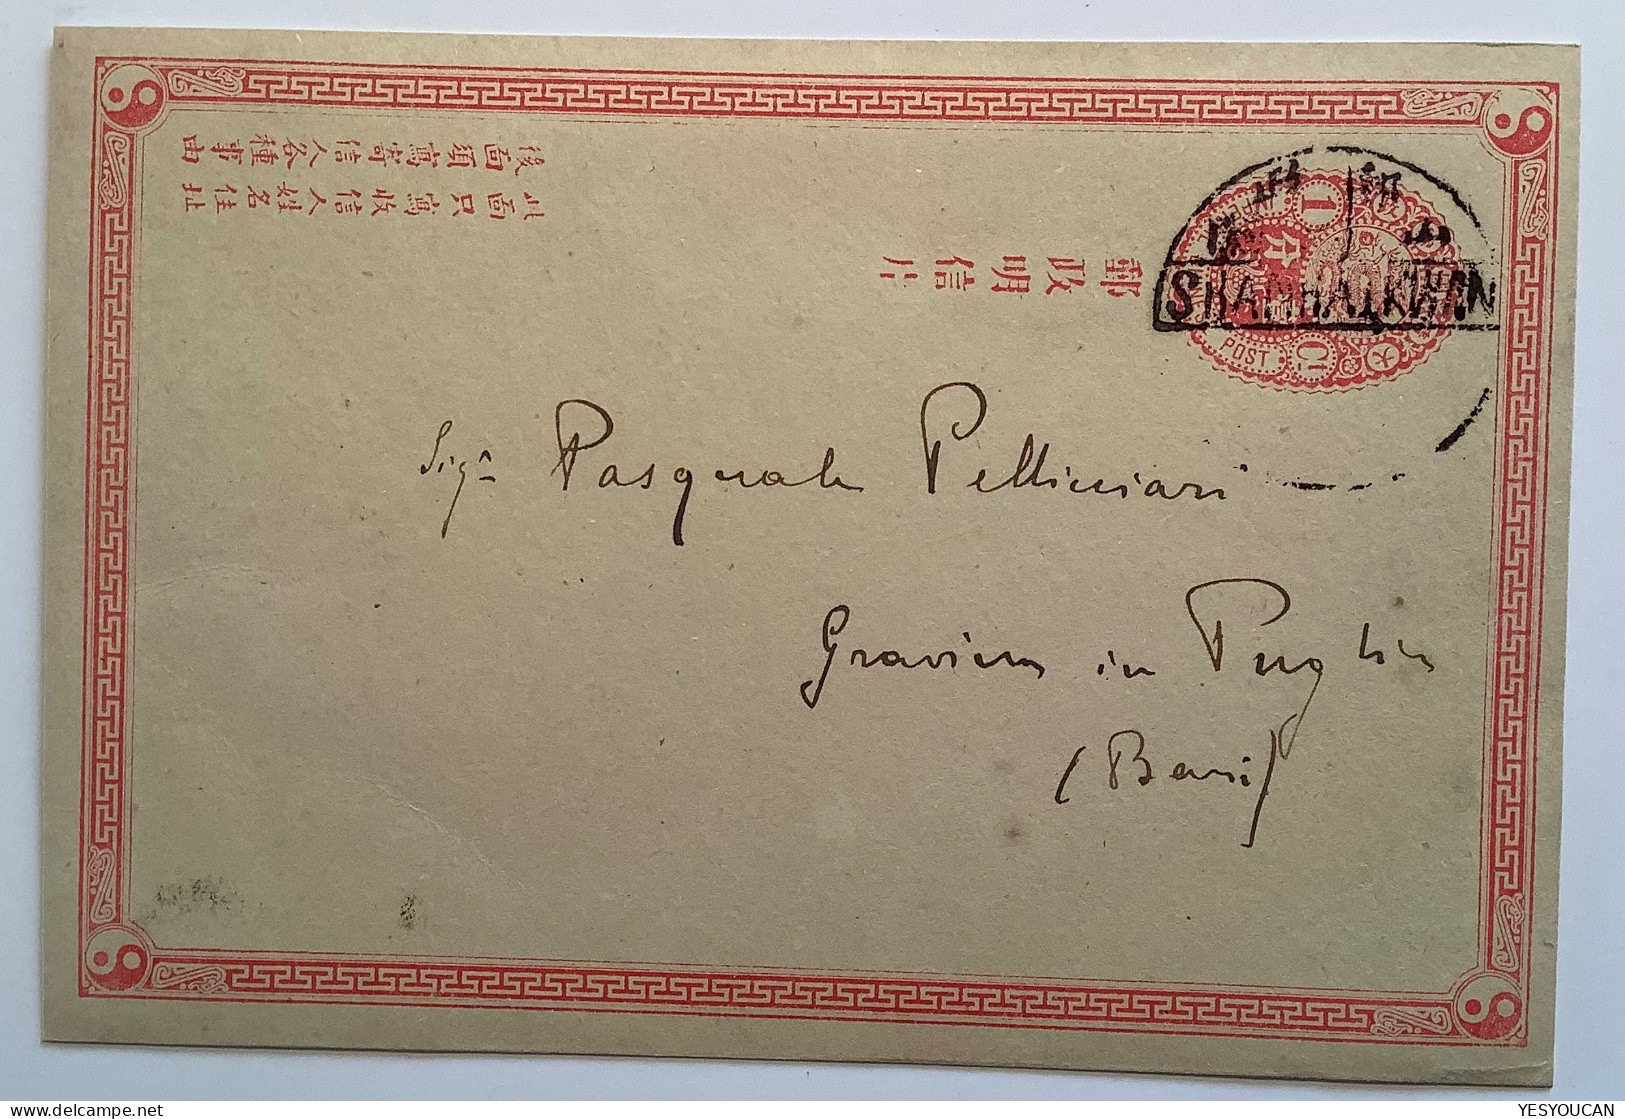 後面須寫寄信人各種事由
此面只寫收信人姓名住址
郵政明信片
1
分
POST
SHANHAIKWAN
Sigr Pasquale Pellicciari
Gravina in Puglia
(Bari)
YESYOUCAN